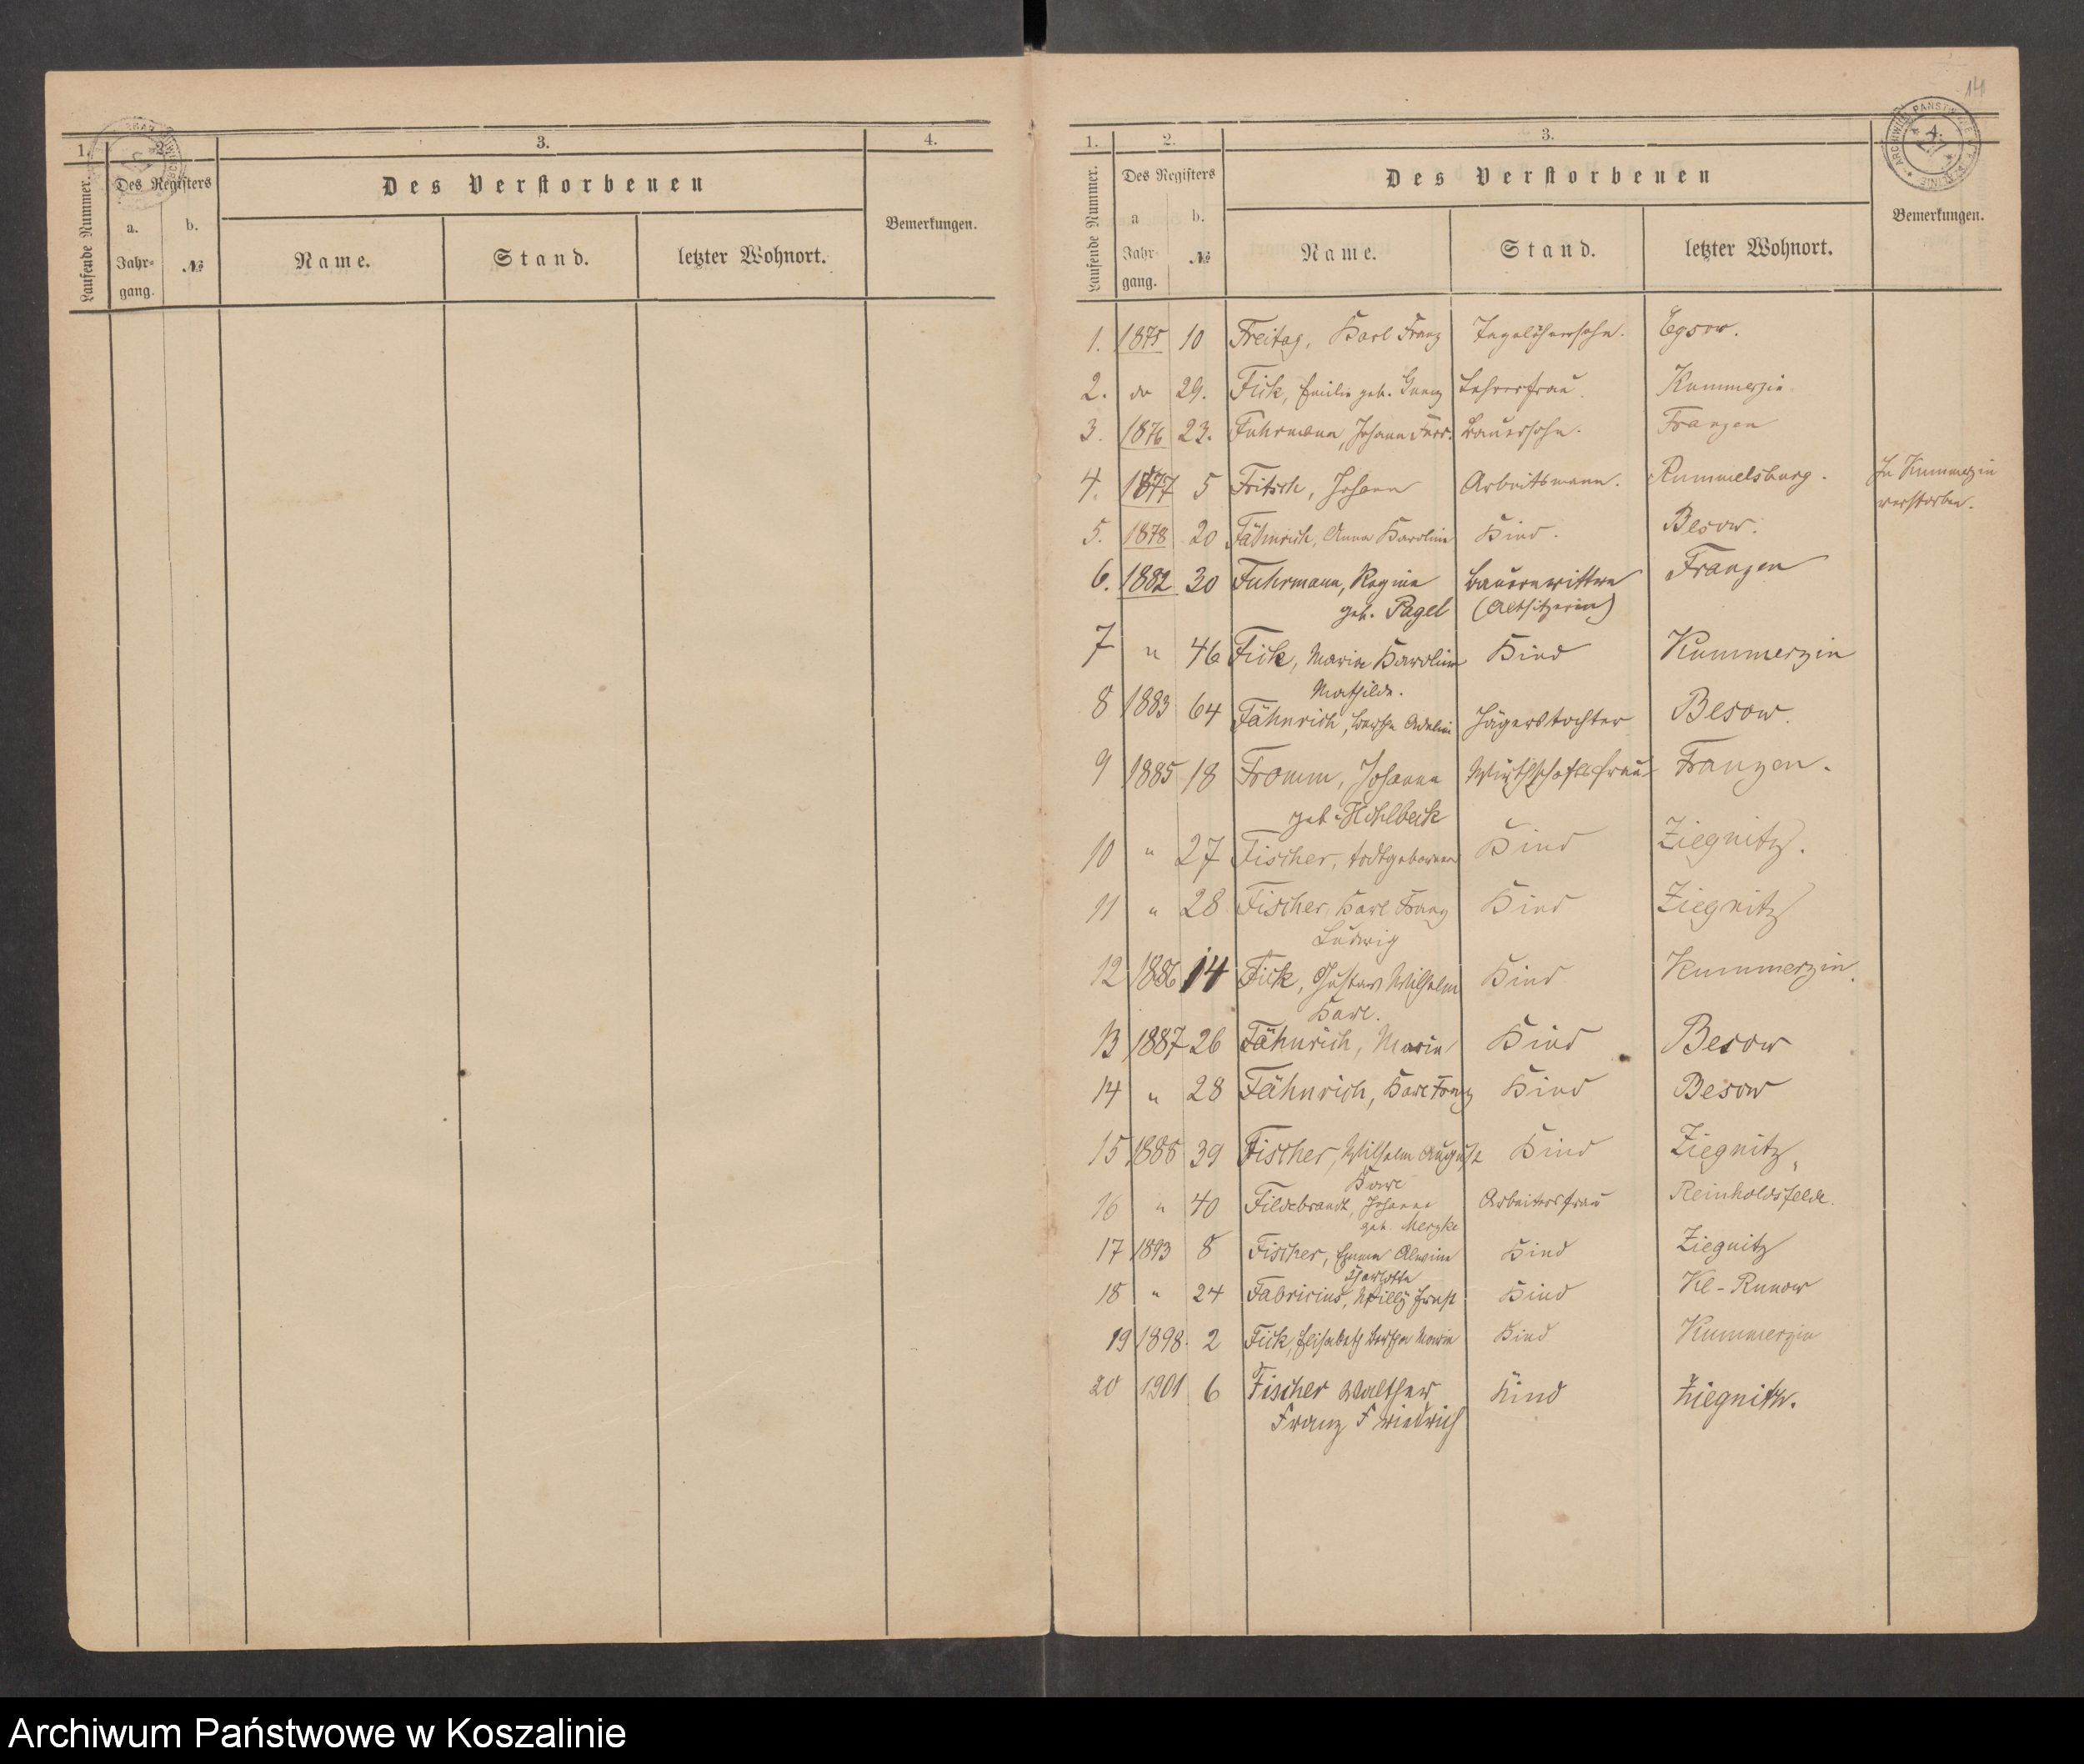 1. 2. 3. 4.
Laufende Nummer.
Des Registers
Des Verstorbenen
Bemerkungen.
a. b.
Jahr=
gang. №
Name. Stand. letzter Wohnort.
14
1. 2. 3. 4.
Laufende Nummer.
Des Registers
Des Verstorbenen
Bemerkungen.
a b.
Jahr-
gang. №
Name. Stand. letzter Wohnort.
1. 1875 10 Freitag, Karl Franz Tagelöhnersohn. Egsow.
2. do 29. Fick, Emilie geb. Lehrerfrau. Kummerzin
3. 1876 23. Fuhrmann, Johann Ferd. Bauersohn. Franzen
4. 1877 5 Fritsch, Johann Arbeitsmann. Rummelsburg. In Kummerzin
verstorben.
5. 1878 20 Fähnrich, Anna Karoline Kind. Besow.
6. 1882 30 Fuhrmann, Regine Bauernwittwe Franzen
geb. Pagel (Altsitzerin)
7 " 46 Fick, Marie Karoline Kind Kummerzin
Mathilde.
8 1883 64 Fähnrich, Bertha Adeline Jägerstochter Besow.
9 1885 18 Fromm, Johanna Wirthschaftsfrau Franzen.
geb. Hohlbeck
10 " 27 Fischer, todtgeborenes Kind Ziegnitz.
11 " 28 Fischer, Karl Franz Kind Ziegnitz
Ludwig
12 1886 14 Fick, Gustav Wilhelm Kind Kummerzin.
Karl.
13 1887 26 Fähnrich, Marie Kind Besow
14 " 28 Fähnrich, Karl Franz Kind Besow
15 1888 39 Fischer, Wilhelm August Kind Ziegnitz
Karl
16 " 40 Fildebrandt, Johanne Arbeiterfrau Reinholdsfelde.
geb. Merzke
17 1893 8 Fischer, Emma Alwine Kind Ziegnitz
Charlotte
18 " 24 Fabricius, Willy Ernst Kind Kl-Runow
19 1898. 2 Fick, Elisabeth Bertha Marie Kind Kummerzin
20 1901 6 Fischer Walther Kind Ziegnitz.
Franz Friedrich
Archiwum Państwowe w Koszalinie